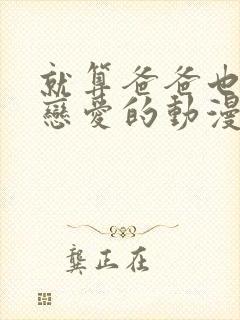 就算爸爸也
戀愛的動漫
龔正在